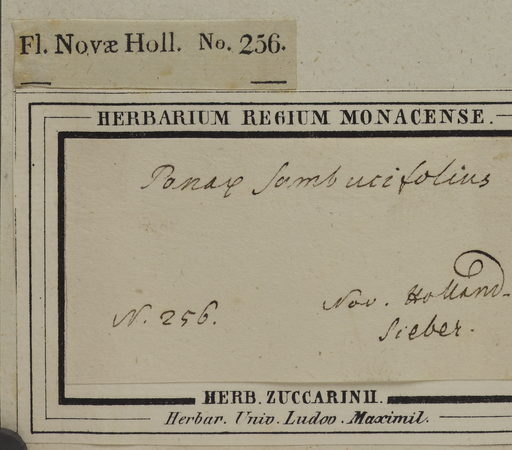 Fl. Novæ Holl. No. 256.
HERBARIUM REGIUM MONACENSE.
Panax sambucifolius
Nov. Holland.
N. 256.
Sieber.
HERB. ZUCCARINII.
Herbar. Univ. Ludov. Maximil.